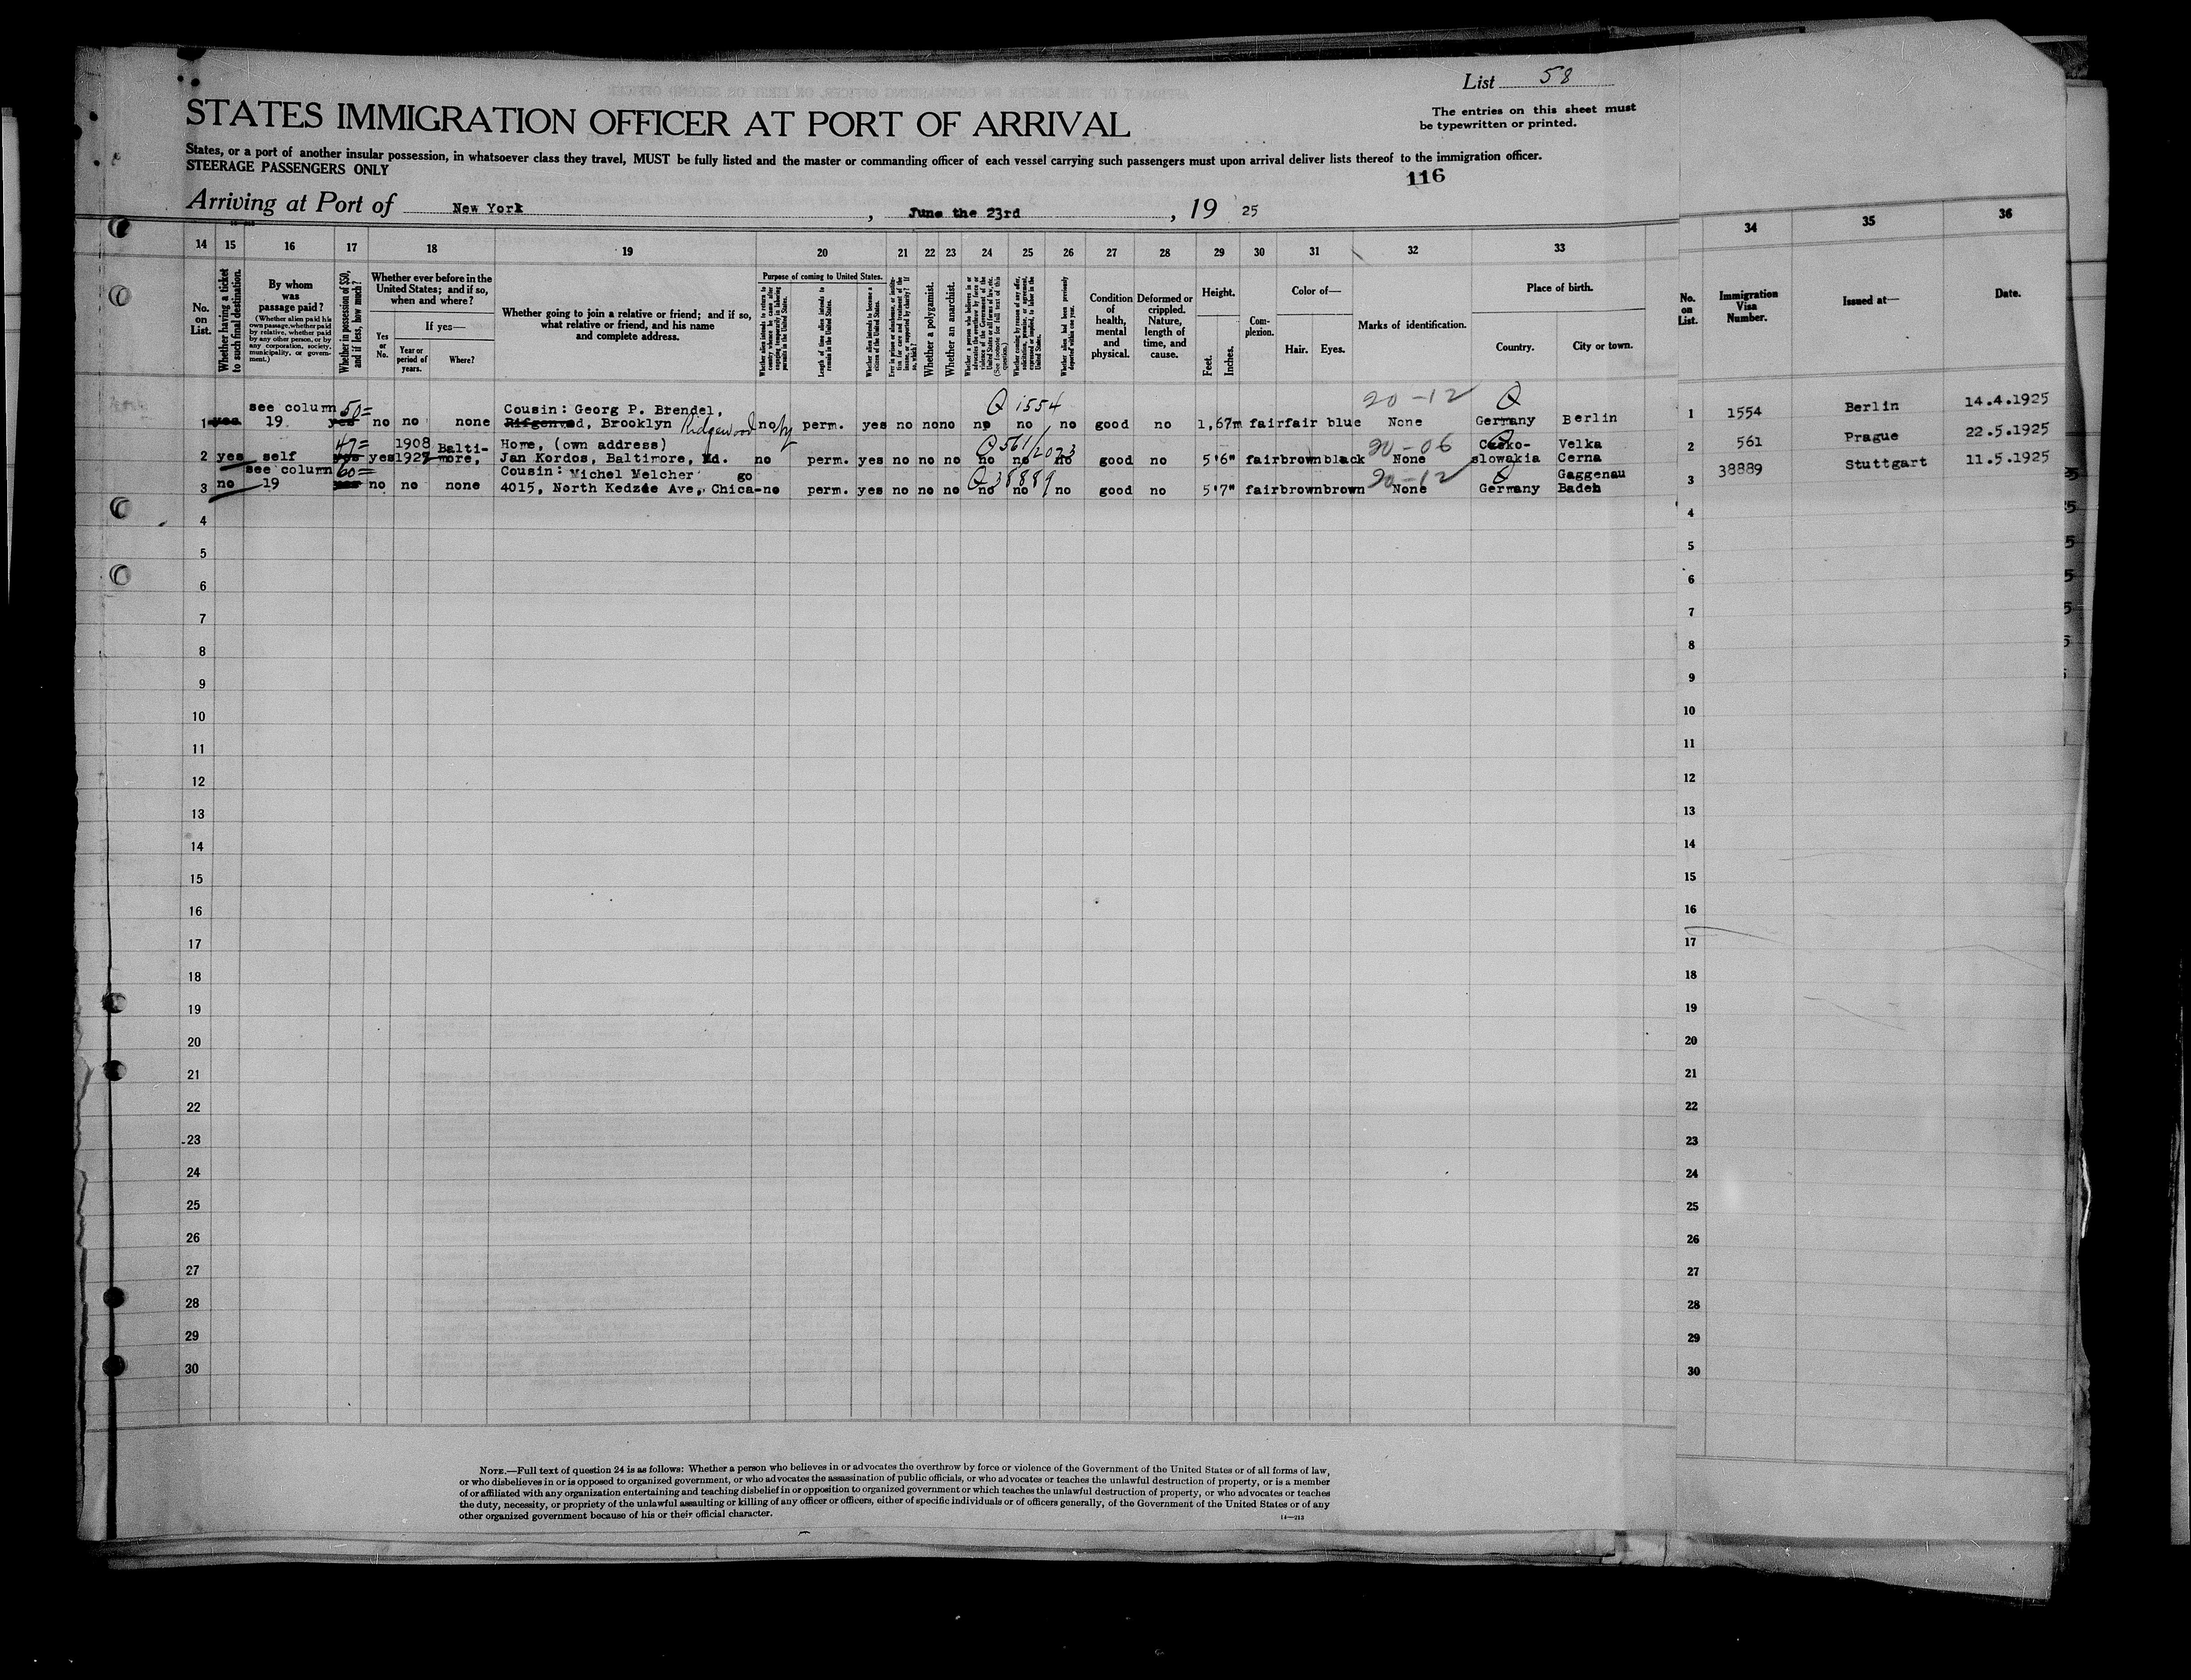 List 58
STATES IMMIGRATION OFFICER AT PORT OF ARRIVAL
The entries on this sheet must
be typewritten or printed.
States, or a port of another insular possession, in whatsoever class they travel, MUST be fully listed and the master or commanding officer of each vessel carrying such passengers must upon arrival deliver lists thereof to the immigration officer.
STEERAGE PASSENGERS ONLY
116
Arriving at Port of New York, June the 23rd, 19 25
14 15 16 17 18 19 20 21 22 23 24 25 26 27 28 29 30 31 32 33 34 35 36
No. on List.
Whether having a ticket to such final destination.
By whom was passage paid?
(Whether alien paid his own passage, whether paid by relative, whether paid by any other person, or by any corporation, society, municipality, or government.)
Whether in possession of $50, and if less, how much?
Whether ever before in the United States; and if so, when and where?
Yes or No.
If yes—
Year or period of years.
Where?
Whether going to join a relative or friend; and if so, what relative or friend, and his name and complete address.
Purpose of coming to United States.
Whether alien intends to return to country whence he came after engaging temporarily in laboring pursuits in the United States.
Length of time alien intends to remain in the United States.
Whether alien intends to become a citizen of the United States.
Ever in prison or almshouse, or institution of care and treatment of the insane, or supported by charity? If so, which?
Whether a polygamist.
Whether an anarchist.
Whether a person who believes in or advocates the overthrow by force or violence of the Government of the United States or all forms of law, etc. (See footnote for full text of this question.)
Whether coming by reason of any offer, solicitation, promise, or agreement, expressed or implied, to labor in the United States.
Whether alien had been previously deported within one year.
Condition of health, mental and physical.
Deformed or crippled. Nature, length of time, and cause.
Height.
Feet. Inches.
Complexion.
Color of—
Hair. Eyes.
Marks of identification.
Place of birth.
Country. City or town.
No. on List.
Immigration Visa Number.
Issued at—
Date.
see column 50= Cousin: Georg P. Brendel, Q 1554 20-12 Q
1 yes 19 yes no no none d, Brooklyn Ridgewood ny no perm. yes no no no no no no good no 1,67m fair fair blue None Germany Berlin 1 1554 Berlin 14.4.1925
47= 1908 Balti- Home, (own address) Q 561/2023 20-06 Q Czeko- Velka
2 yes self yes yes 192 more, Jan Kordos, Baltimore, Md. no perm. yes no no no no no no good no 5'6" fair brown black None slowakia Cerna 2 561 Prague 22.5.1925
see column 60= Cousin: Michel Melcher go Q 38889 20-12 Q Gaggenau
3 no 19 yes no no none 4015, North Kedzie Ave, Chica- no perm. yes no no no no no no good no 5'7" fair brown brown None Germany Baden 3 38889 Stuttgart 11.5.1925
4 4
5 5
6 6
7 7
8 8
9 9
10 10
11 11
12 12
13 13
14 14
15 15
16 16
17 17
18 18
19 19
20 20
21 21
22 22
23 23
24 24
25 25
26 26
27 27
28 28
29 29
30 30
NOTE.—Full text of question 24 is as follows: Whether a person who believes in or advocates the overthrow by force or violence of the Government of the United States or of all forms of law,
or who disbelieves in or is opposed to organized government, or who advocates the assassination of public officials, or who advocates or teaches the unlawful destruction of property, or is a member
of or affiliated with any organization entertaining and teaching disbelief in or opposition to organized government or which teaches the unlawful destruction of property, or who advocates or teaches
the duty, necessity, or propriety of the unlawful assaulting or killing of any officer or officers, either of specific individuals or of officers generally, of the Government of the United States or of any
other organized government because of his or their official character.
14—213